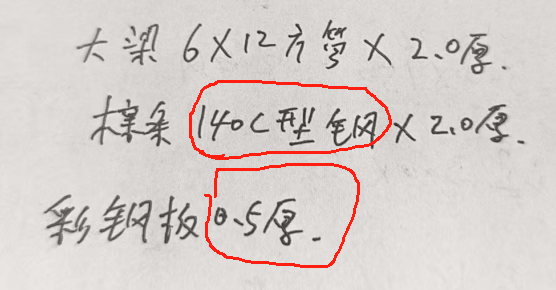 大梁 6×12方管×2.0厚.
檩条 140C型钢×2.0厚.
彩钢板0.5厚.